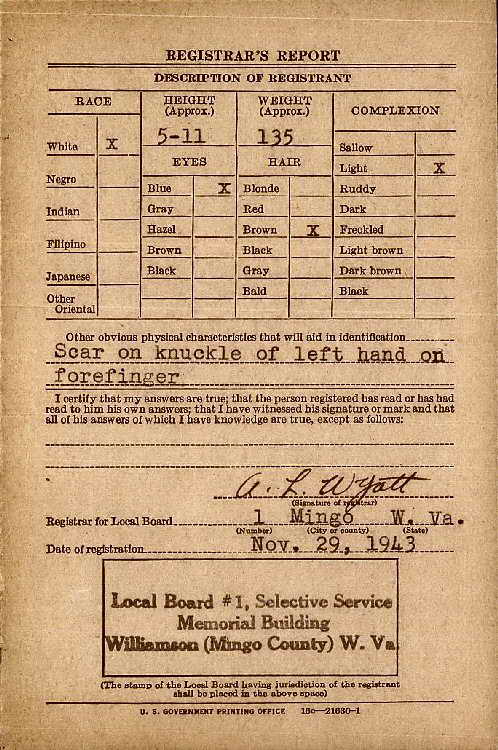 REGISTRAR'S REPORT
DESCRIPTION OF REGISTRANT
RACE
HEIGHT
(Approx.)
WEIGHT
(Approx.)
COMPLEXION
White X
5-11
135
Sallow
EYES
HAIR
Light X
Negro
Blue X
Blonde
Ruddy
Indian
Gray
Red
Dark
Hazel
Brown X
Freckled
Filipino
Brown
Black
Light brown
Japanese
Black
Gray
Dark brown
Other
Oriental
Bald
Black
Other obvious physical characteristics that will aid in identification
Scar on knuckle of left hand on
forefinger
I certify that my answers are true; that the person registered has read or has had
read to him his own answers; that I have witnessed his signature or mark and that
all of his answers of which I have knowledge are true, except as follows:
A. L. Wyatt
(Signature of registrar)
Registrar for Local Board 1 Mingo W. Va.
(Number) (City or county) (State)
Date of registration Nov. 29, 1943
Local Board #1, Selective Service
Memorial Building
Williamson (Mingo County) W. Va
(The stamp of the Local Board having jurisdiction of the registrant
shall be placed in the above space)
U. S. GOVERNMENT PRINTING OFFICE 16—21630-1